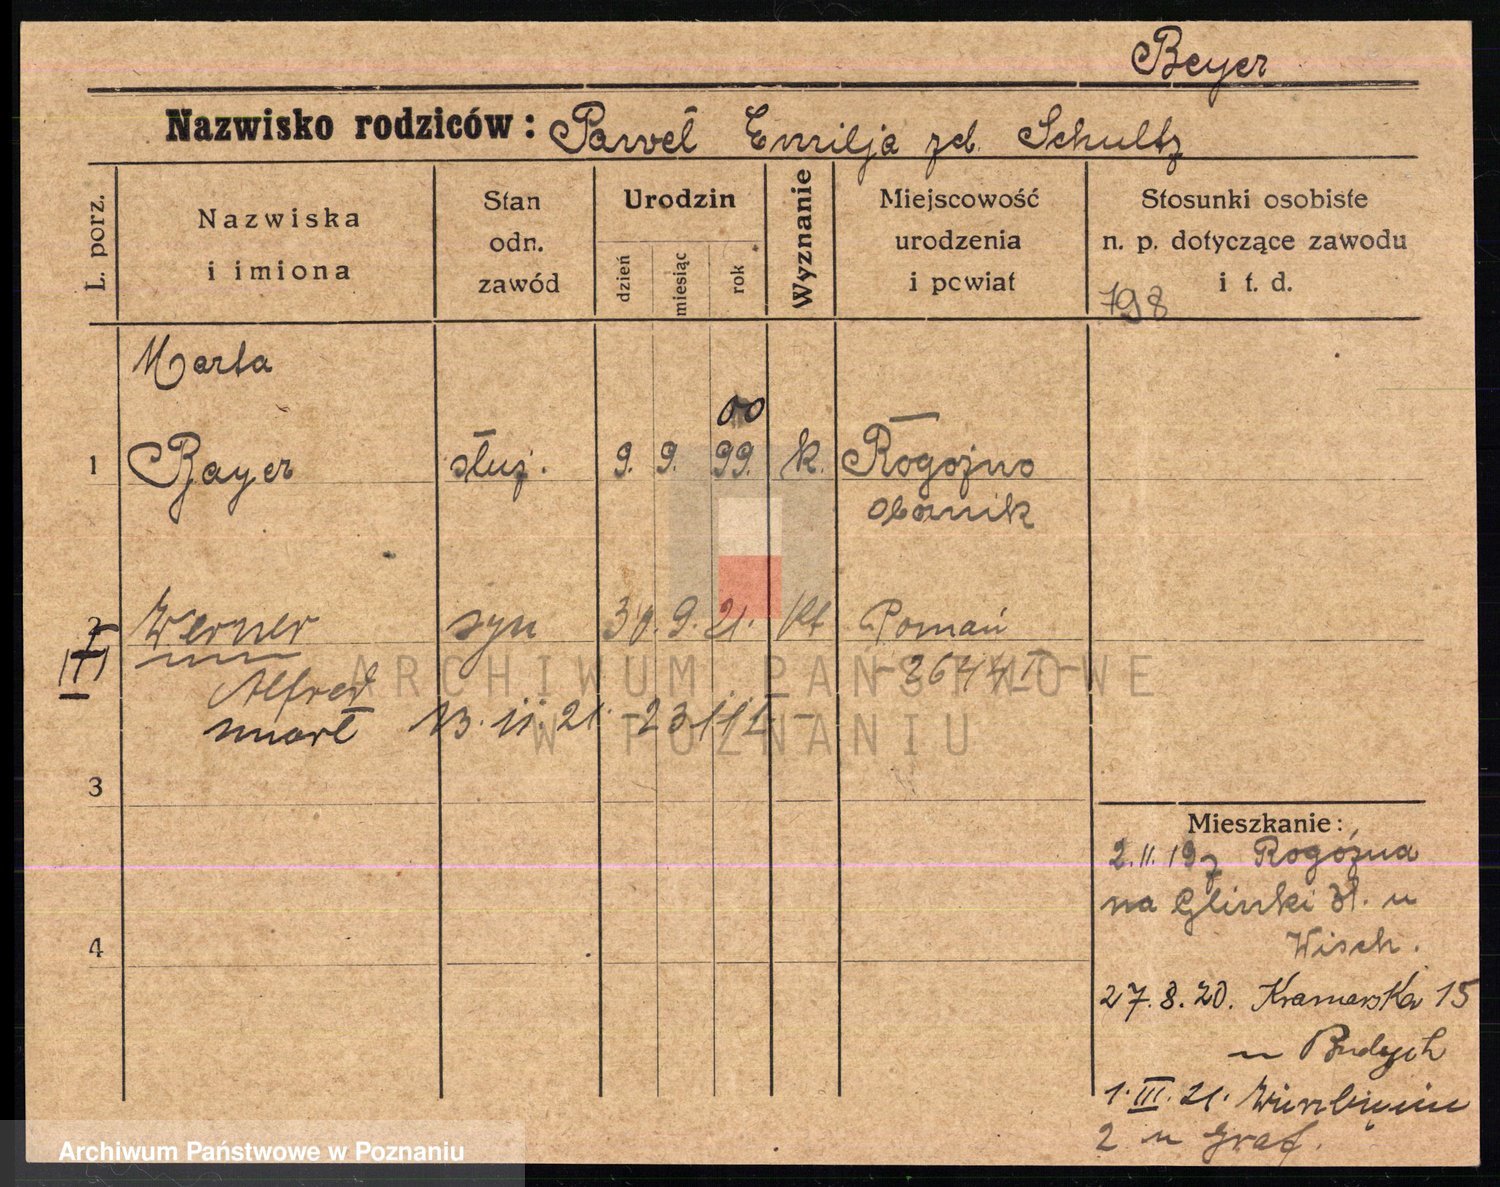 Beyer
Nazwisko rodziców: Paweł Emilja zd. Schultz
L. porz.
Nazwiska i imiona
Stan odn. zawód
Urodzin
dzień
miesiąc
rok
Wyznanie
Miejscowość urodzenia i powiat
Stosunki osobiste n. p. dotyczące zawodu i t. d.
798
Marta
00
1 Bayer służ. 9. 9. 99. k. Rogoźno
Obornik
2 Werner syn 30. 9. 21. kt Poznań
Alfred
umarł 13. 11. 21.
3
4
Mieszkanie:
2. II. 19 z Rogoźna
na Glinki 31. u
Wisch.
27. 8. 20. Kramarska 15
u Budych
1. III. 21. Wierzbięcice
2 u Graf.
ARCHIWUM PAŃSTWOWE
W POZNANIU
Archiwum Państwowe w Poznaniu